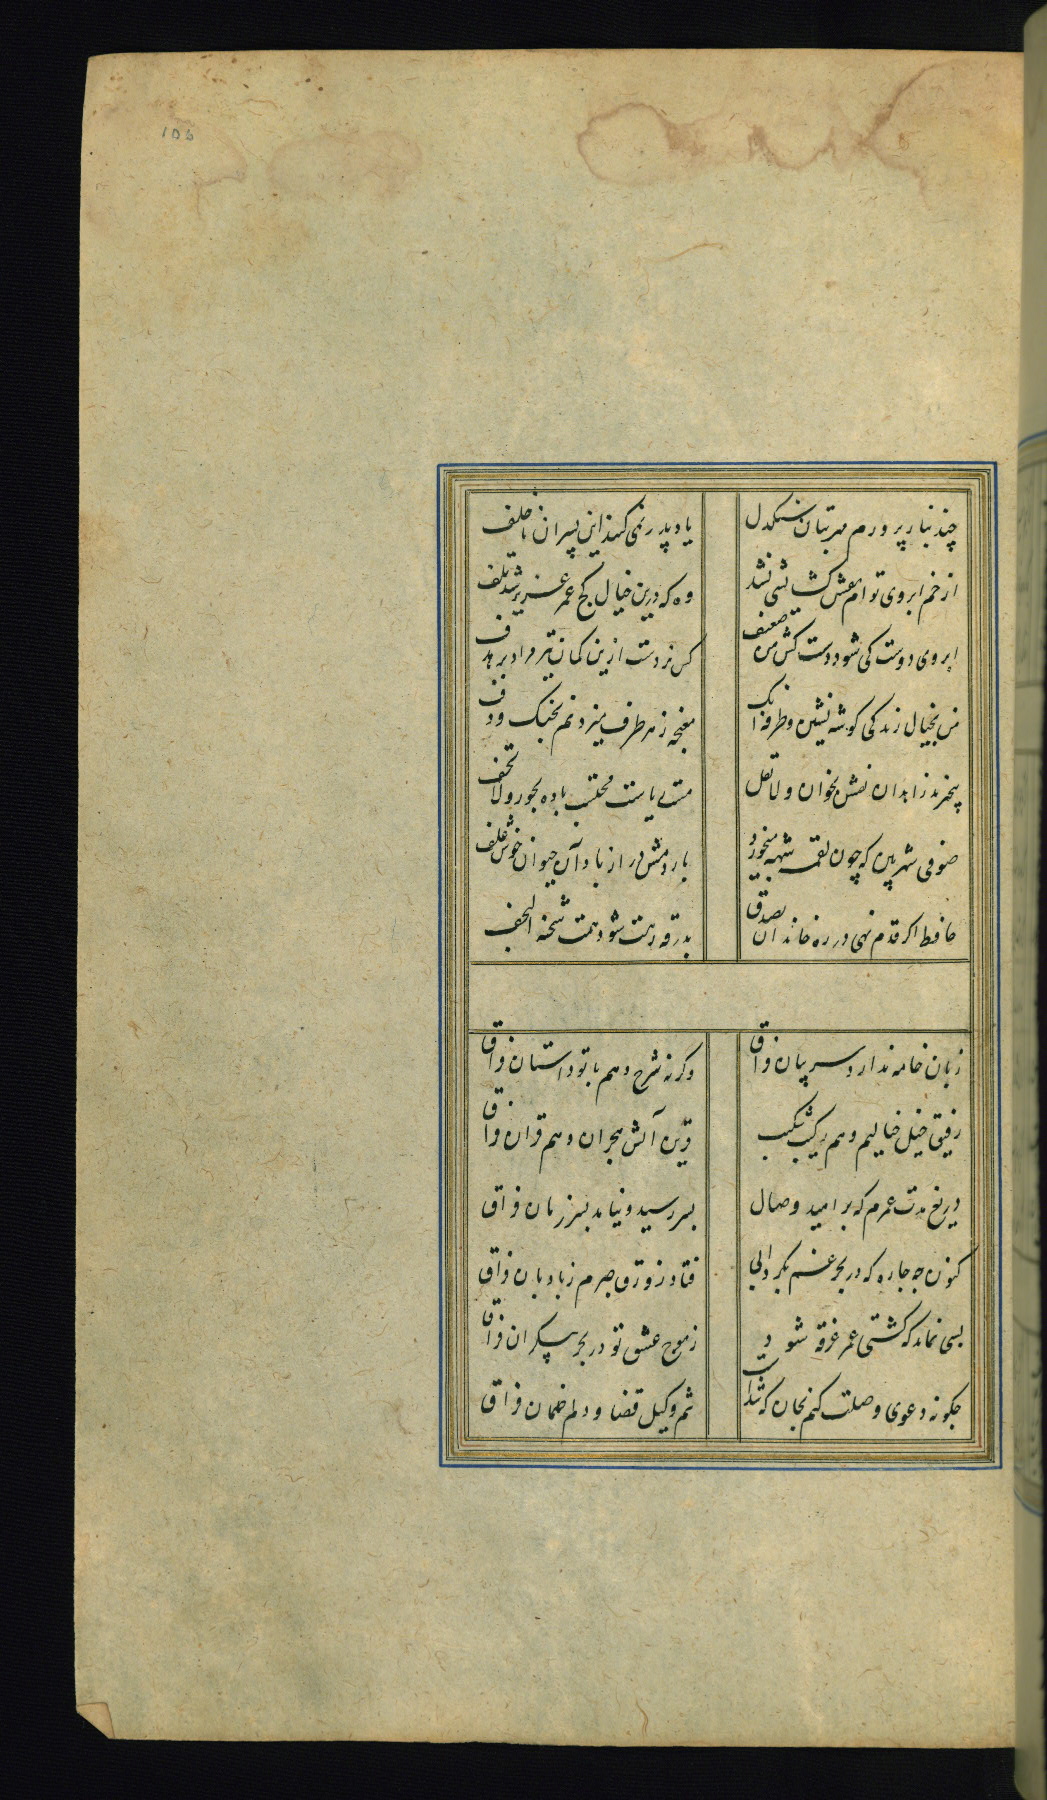 105
چند بناز پرورم مهر بتان سنگدل یاد پدر نمی‌کنند این پسران ناخلف
از خم ابروی توام نقش گشایشی نشد وه که درین خیال کج عمر عزیز شد تلف
ابروی دوست کی شود دست کش من ضعیف کس نزدست ازین کمان تیر مراد بر هدف
من بخیال زندکی کوشه نشین و طرفه انک مغبچه ز هر طرف میزندم بچنک و دف
بیخبرند زاهدان نقش بخوان ولا تقل مست ریاست محتسب باده بخور ولا تخف
صوفی شهر بین که چون لقمه شبهه میخورد باردمش دراز باد آن حیوان خوش علف
حافظ اکر قدم نهی در ره خاندان بصدق بدرقه رهت شود همت شحنه النجف
زبان خامه ندارد سر بیان فراق وکرنه شرح دهم با تو داستان فراق
رفیق خیل خیالیم و هم رکیب شکیب قرین آتش هجران و هم قران فراق
دریغ مدت عمرم که بر امید وصال بسر رسید و نیامد بسر زمان فراق
کنون چه چاره که در بحر غم بکردابی فتاد زورق صبرم ز بادبان فراق
بسی نماند که کشتی عمر غرقه شود ز موج عشق تو در بحر بیکران فراق
چکونه دعوی وصلت کنم بجان که شداست تنم وکیل قضا و دلم ضمان فراق